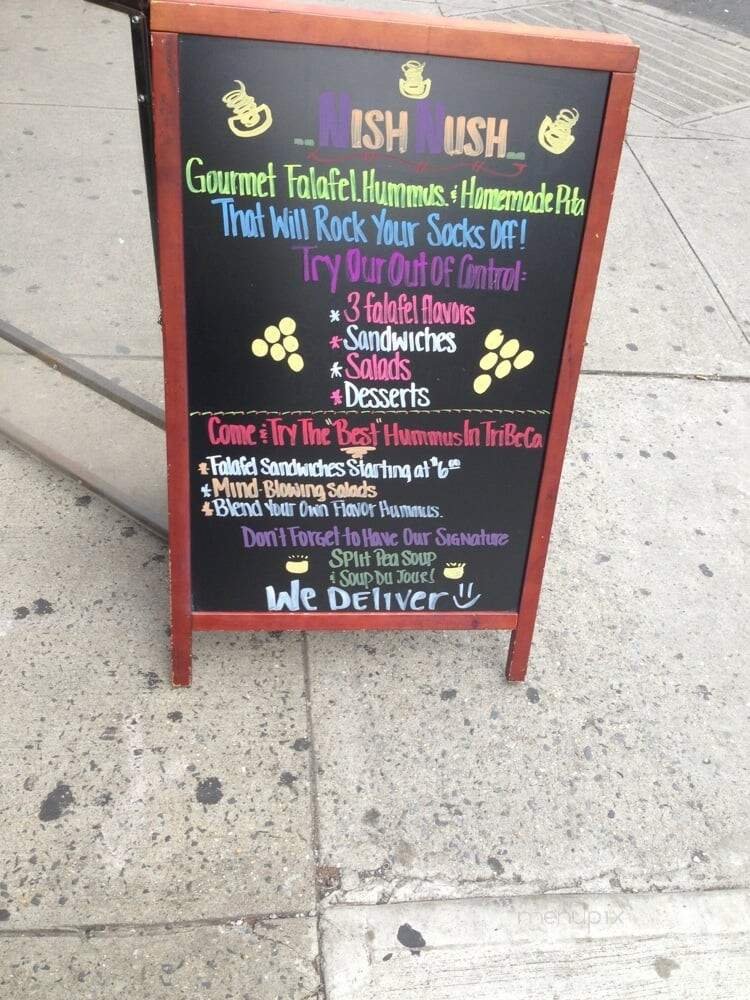 Nish Nush
Gourmet Falafel. Hummus. & Homemade Pita
That Will Rock Your Socks Off!
Try Our Out Of Control:
* 3 falafel flavors
* Sandwiches
* Salads
* Desserts
Come & Try The "Best" Hummus In TriBeCa
* Falafel Sandwiches Starting at $6⁰⁰
* Mind-Blowing Salads
* Blend Your Own Flavor Hummus.
Don't Forget to Have Our Signature
Split Pea Soup
& Soup Du Jour!
We Deliver
menupix